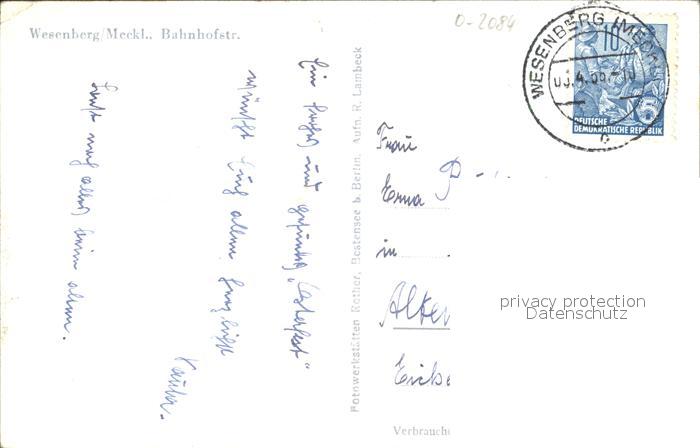 Wesenberg/Meckl., Bahnhofstr.
O-2084
WESENBERG (MECKL
10
5
DEUTSCHE
DEMOKRATISCHE REPUBLIK
Ein frohes und gesundes „Osterfest"
wünscht Euch allen herzlichst
Sonst noch alles beim alten.
Fotowerkstätten Rother, Bestensee b. Berlin, Aufn. R. Lambeck
Frau
Erna P
in
Alten
Verbrauche
privacy protection
Datenschutz